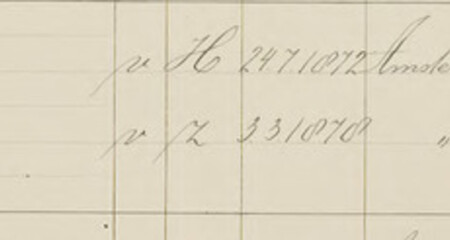 v H 24 7 1872 Amste
v Z 3 3 1878 "